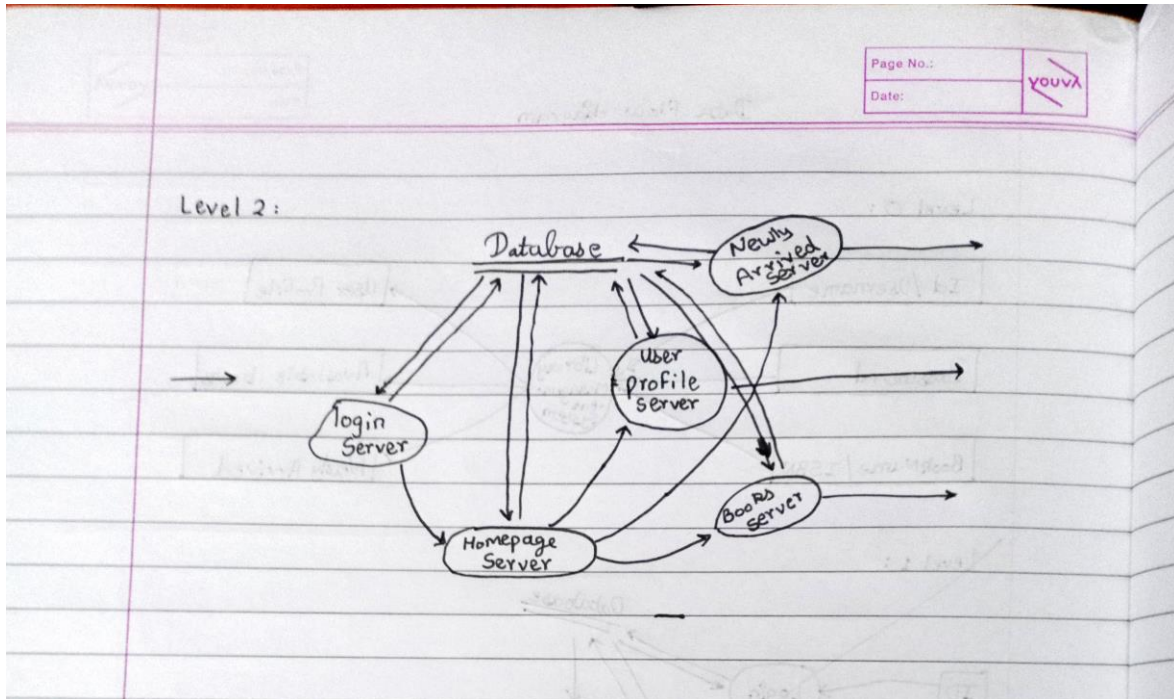 Page No.:
Date:
youva
Level 2:
Database
Newly
Arrived
Server
User
profile
server
login
Server
Books
Server
Homepage
Server